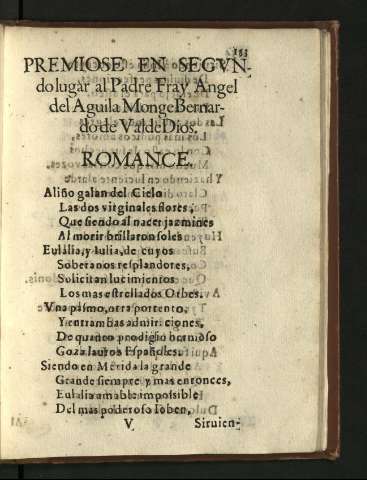 153
PREMIOSE EN SEGVN-
do lugar al Padre Fray Angel
del Aguila Monge Bernar-
do de ValdeDios.
ROMANCE.
Aliño galan del Cielo
Las dos virginales flores,
Que siendo al nacer jazmines
Al morir brillaron soles
Eulalia, y Iulia, de cuyos
Soberanos resplandores,
Solicitan lucimientos
Los mas estrellados Orbes.
Vna pasmo, otra portento,
Y entrambas admiraciones,
De quanto prodigio hermoso
Goza lauros Españoles.
Siendo en Merida la grande
Grande siempre y mas entonces,
Eulalia amable impossible
Del mas poderoso Ioben,
V Siruien-